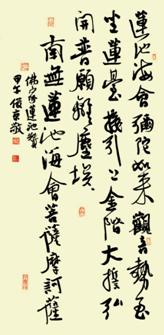 蓮池海會彌陀如來觀音勢至
坐蓮臺接引上金階大誓弘
開普願離塵埃
南無蓮池海會菩薩摩訶薩
蓮池讚
甲午